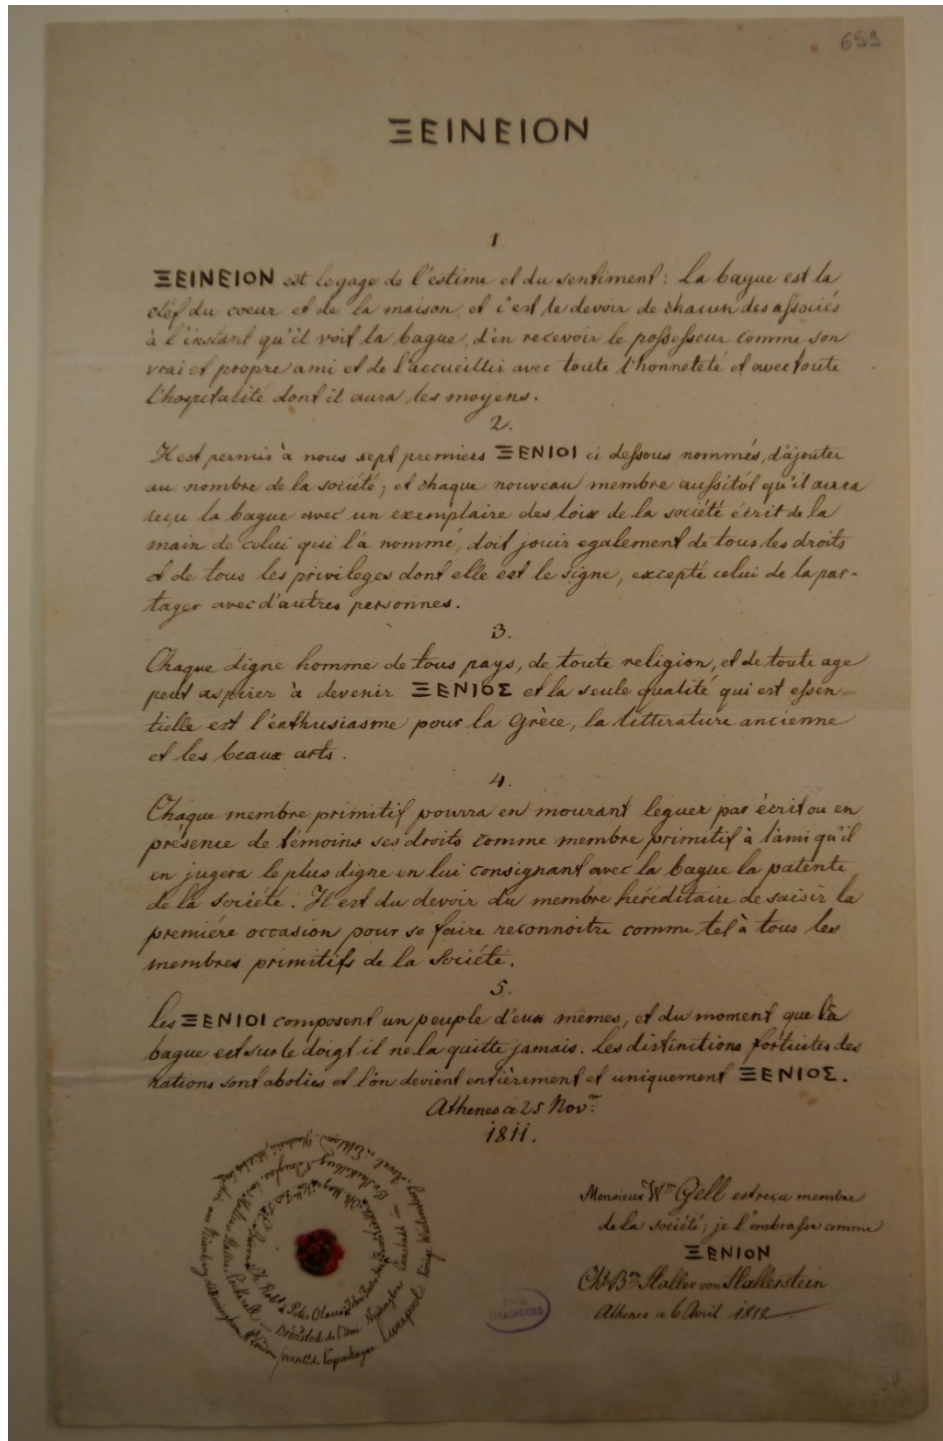 659
ΞEINEION
1
ΞEINEION est le gage de l'estime et du sentiment: La bague est la
cléf du coeur et de la maison, et c'est le devoir de chacun des associés
à l'instant qu'il voit la bague, d'en recevoir le possesseur comme son
vrai et propre ami et de l'accueillir avec toute l'honneteté et avec toute
l'hospitalité dont il aura les moyens.
2.
Il est permis à nous sept premiers ΞENIOI ci dessous nommés, d'ajouter
au nombre de la société; et chaque nouveau membre aussitôt qu'il aura
reçu la bague avec un exemplaire des loix de la société écrit de la
main de celui qui l'à nommé, doit jouir egalement de tous les droits
et de tous les privileges dont elle est le signe, excepté celui de la par-
tager avec d'autres personnes.
3.
Chaque digne homme de tous pays, de toute religion, et de toute age
peut aspirer à devenir ΞENIOΣ et la seule qualité qui est essen-
tielle est l'enthusiasme pour la Grèce, la litterature ancienne
et les beaux arts.
4.
Chaque membre primitif pourra en mourant leguer par écrit ou en
présence de témoins ses droits comme membre primitif à l'ami qu'il
en jugera le plus digne en lui consignant avec la bague la patente
de la société. Il est du devoir du membre héréditaire de saisir la
première occasion pour se faire reconnoitre comme tel à tous les
membres primitifs de la Société.
5.
Les ΞENIOI composent un peuple d'eux mêmes, et du moment que la
bague est sur le doigt il ne la quitte jamais. Les distinctions fortuites des
nations sont abolies et l'on devient entièrement et uniquement ΞENIOΣ.
Athenes ce 25 Nov.re
1811.
Monsieur Wm Gell est reçu membre
de la société; je l'embrasse comme
ΞENION
Chs Bon Haller von Hallerstein
Athenes a 6 Avril 1812
Liverpool
Copenhague
STRASBOURG